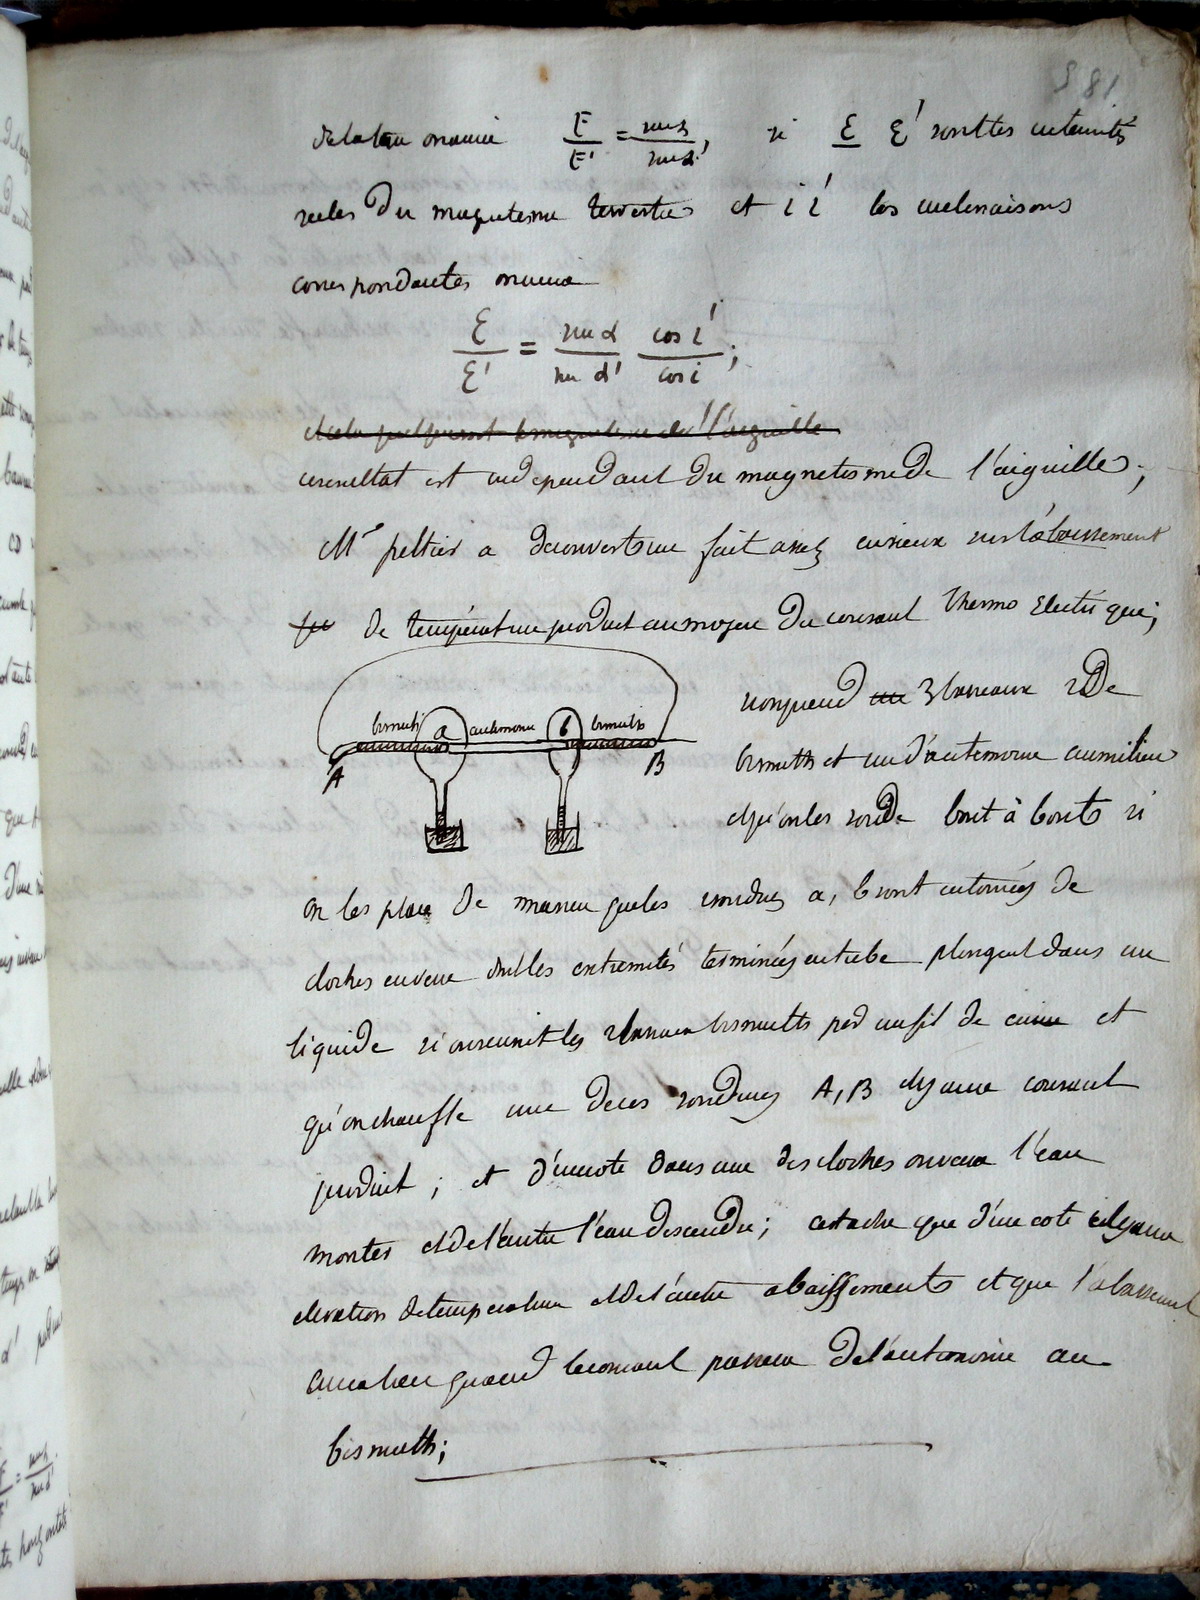 581
de la terre on aura F/F' = sin α/sin α', si E E' sont les intensités
réelles du magnetisme terrestre et i i' les inclinaisons
correspondantes on aura
E/E' = sin α/sin α' cos i'/cos i ;
ce resultat est independant du magnetisme de l'aiguille ;
Mr peltier a decouvert un fait assez curieux sur l'abaissement
de température produit au moyen du courant thermo electrique ;
bismuth a antimoine b bismuth
A B
si on prend 3 barreaux 2 de
bismuth et un d'antimoine au milieu
et qu'on les soude bout à bout si
on les place de maniere que les soudures a, b sont entourées de
cloches en verre dont les extremités terminées en tube plongent dans un
liquide si on reunit les 2 barreaux bismuth par un fil de cuivre et
qu'on chauffe une de ces soudures A, B il y aura courant
produit ; et d'un coté dans une des cloches on verra l'eau
monter et de l'autre l'eau descendre ; c'est a dire que d'un coté il y aura
elevation de temperature et de l'autre abaissement et que l'abaissement
aura lieu quand le courant passera de l'antimoine au
bismuth ;